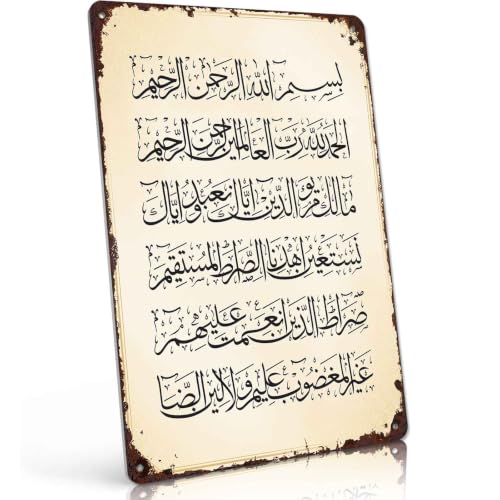 بسم الله الرحمن الرحيم
الحمد لله رب العالمين الرحمن الرحيم
مالك يوم الدين اياك نعبد واياك
نستعين اهدنا الصراط المستقيم
صراط الذين انعمت عليهم
غير المغضوب عليهم ولا لين الضا